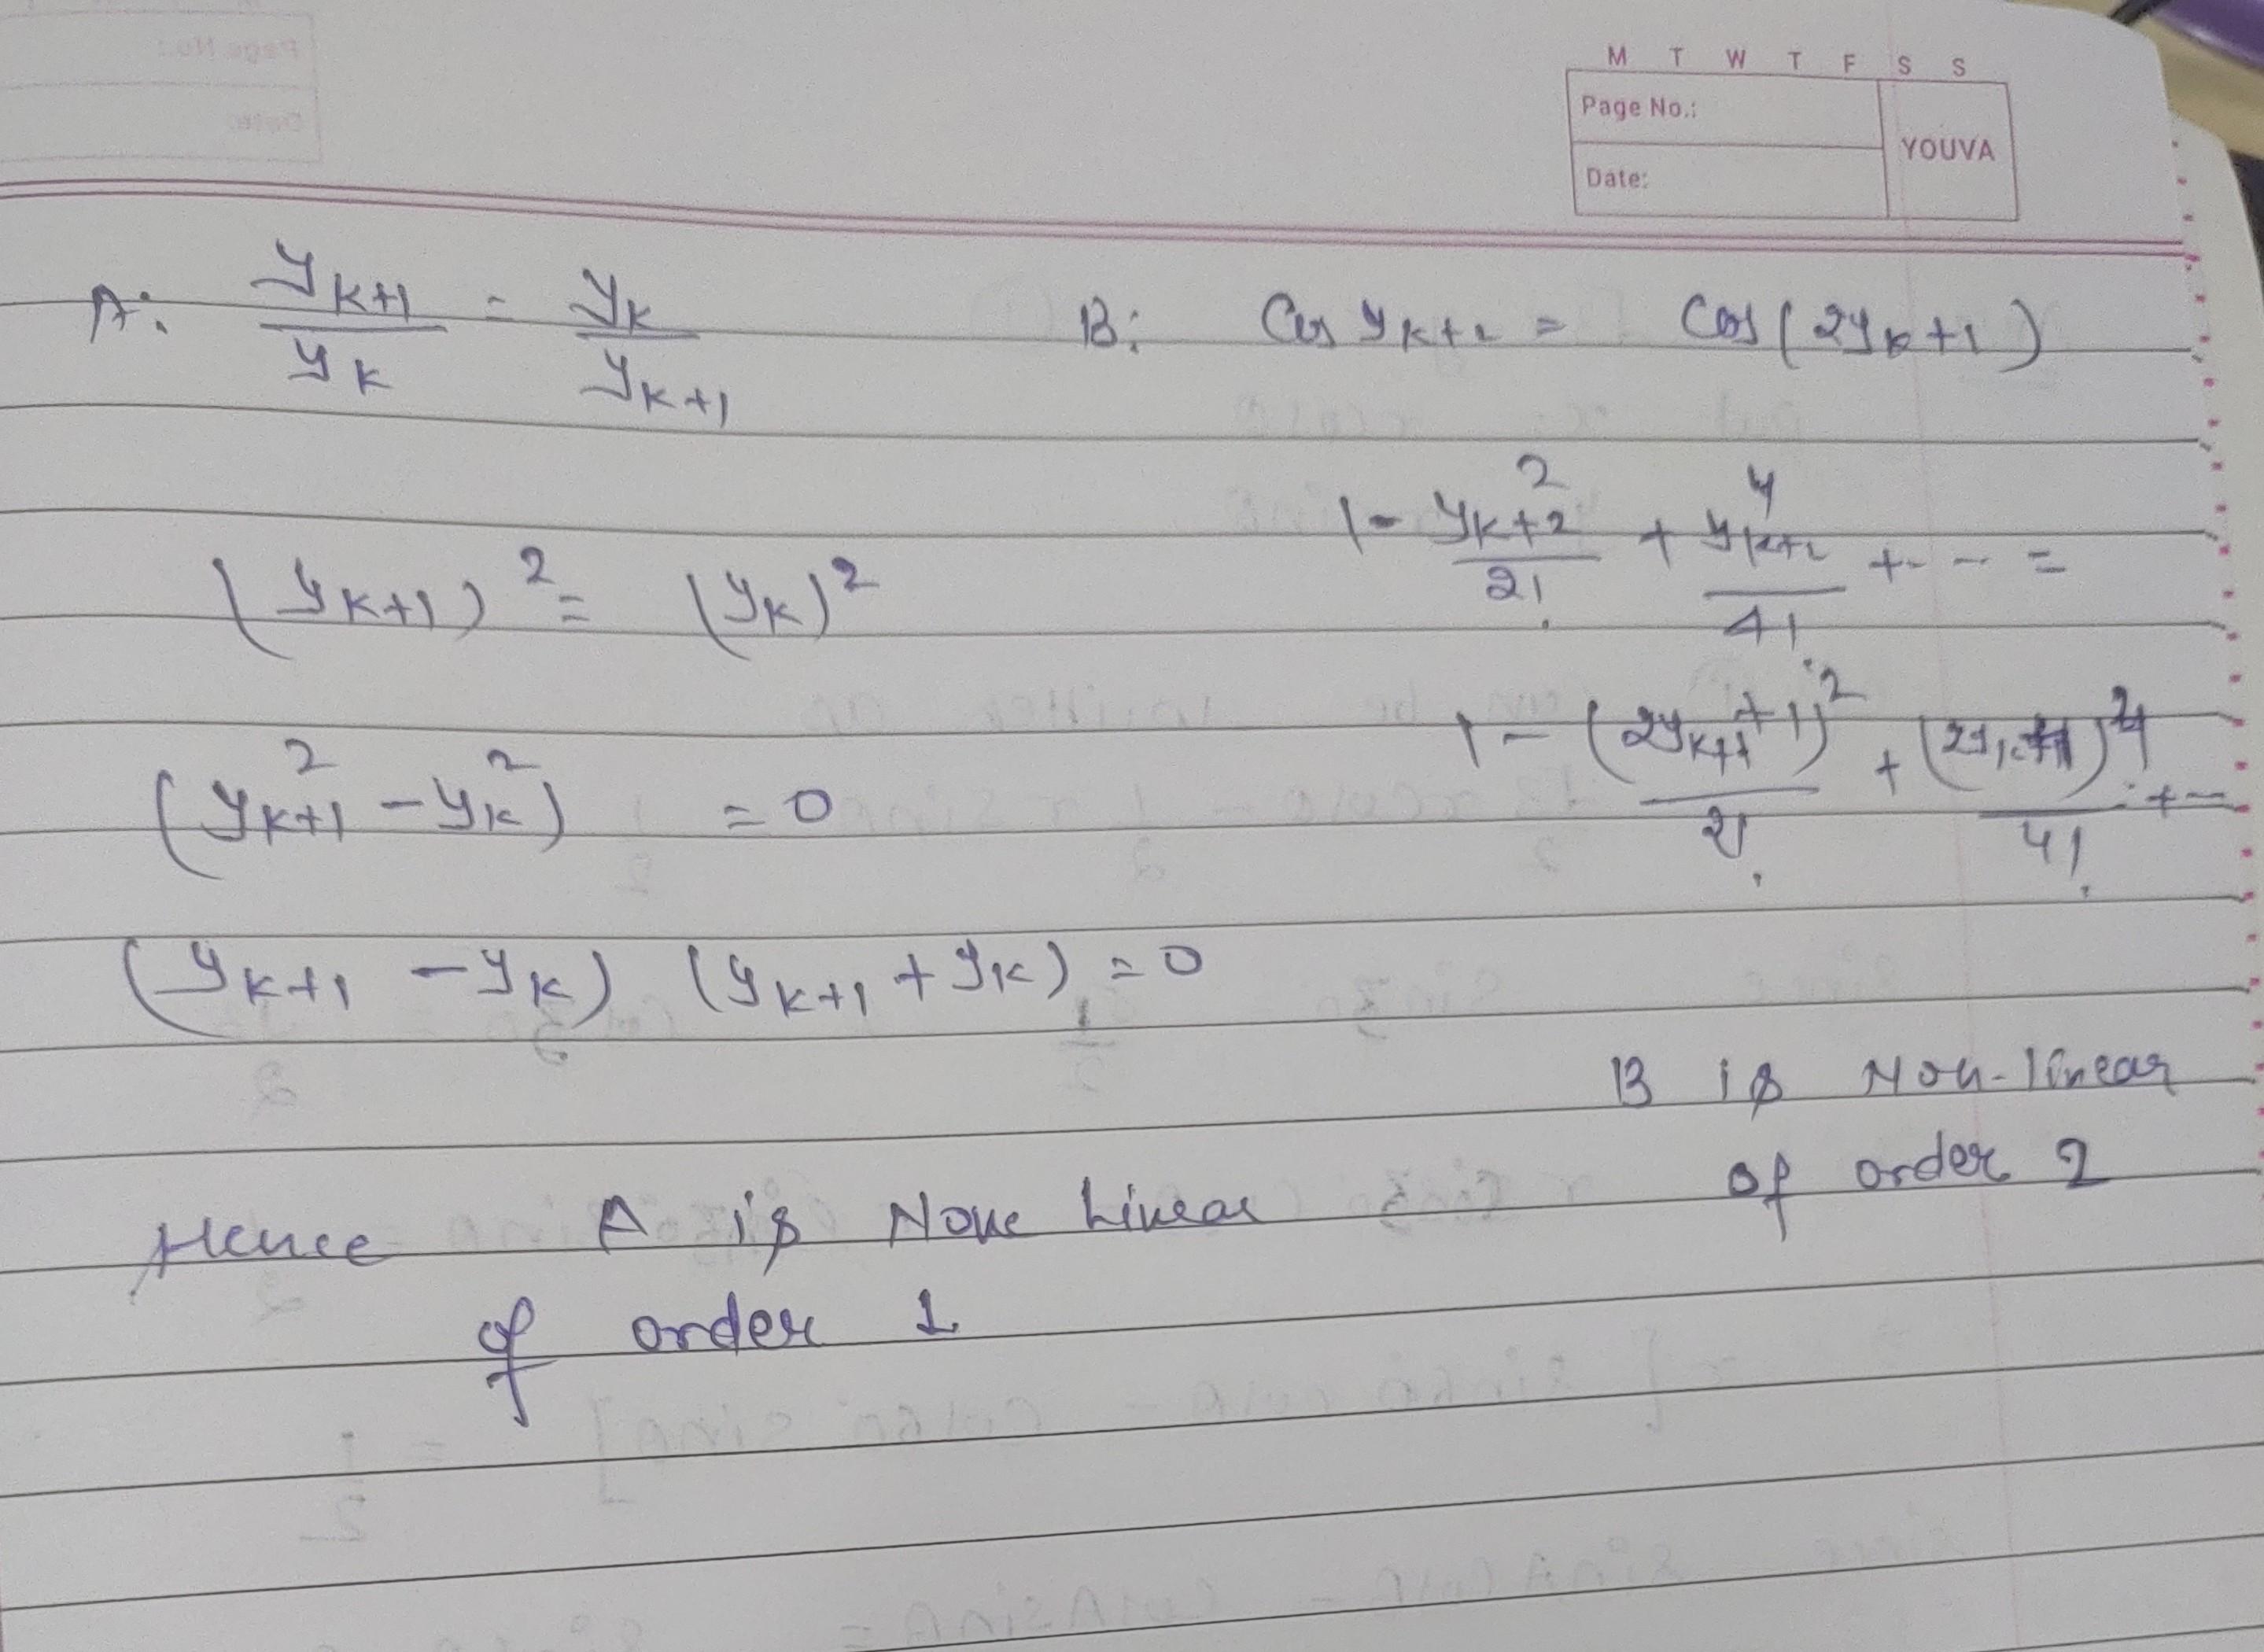 M T W T F S S
Page No.:
YOUVA
Date:
A: y_{k+1}/y_k = y_k/y_{k+1}
B: Cos y_{k+2} = Cos(2y_k+1)
(y_{k+1})^2 = (y_k)^2
1 - y_{k+2}^2/2! + y_{k+2}^4/4! + - - - =
(y_{k+1}^2 - y_k^2) = 0
1 - (2y_{k+1}+1)^2/2! +
(y_{k+1} - y_k) (y_{k+1} + y_k) = 0
B is Non-linear
of order 2
Hence A is None Linear
of order 1